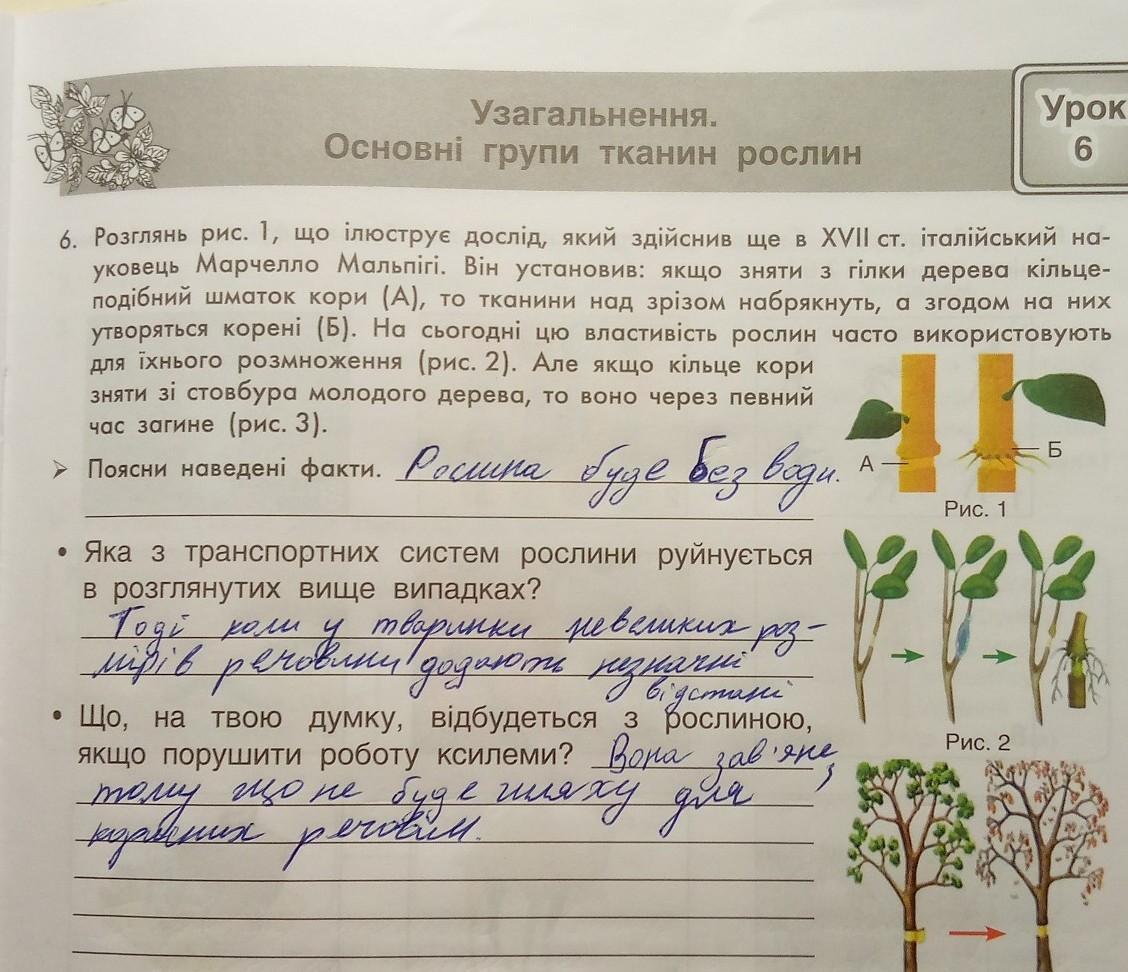 Узагальнення.
Основні групи тканин рослин
Урок
6
6. Розглянь рис. 1, що ілюструє дослід, який здійснив ще в XVII ст. італійський на-
уковець Марчелло Мальпігі. Він установив: якщо зняти з гілки дерева кільце-
подібний шматок кори (А), то тканини над зрізом набрякнуть, а згодом на них
утворяться корені (Б). На сьогодні цю властивість рослин часто використовують
для їхнього розмноження (рис. 2). Але якщо кільце кори
зняти зі стовбура молодого дерева, то воно через певний
час загине (рис. 3).
➤ Поясни наведені факти. Рослина буде без води.
А
Б
Рис. 1
• Яка з транспортних систем рослини руйнується
в розглянутих вище випадках?
Тоді коли у тваринки невеликих роз-
мірів речовини додають незначні
відстані
• Що, на твою думку, відбудеться з рослиною,
якщо порушити роботу ксилеми? Вона зав'яне,
тому що не буде шляху для
корисних речовин.
Рис. 2